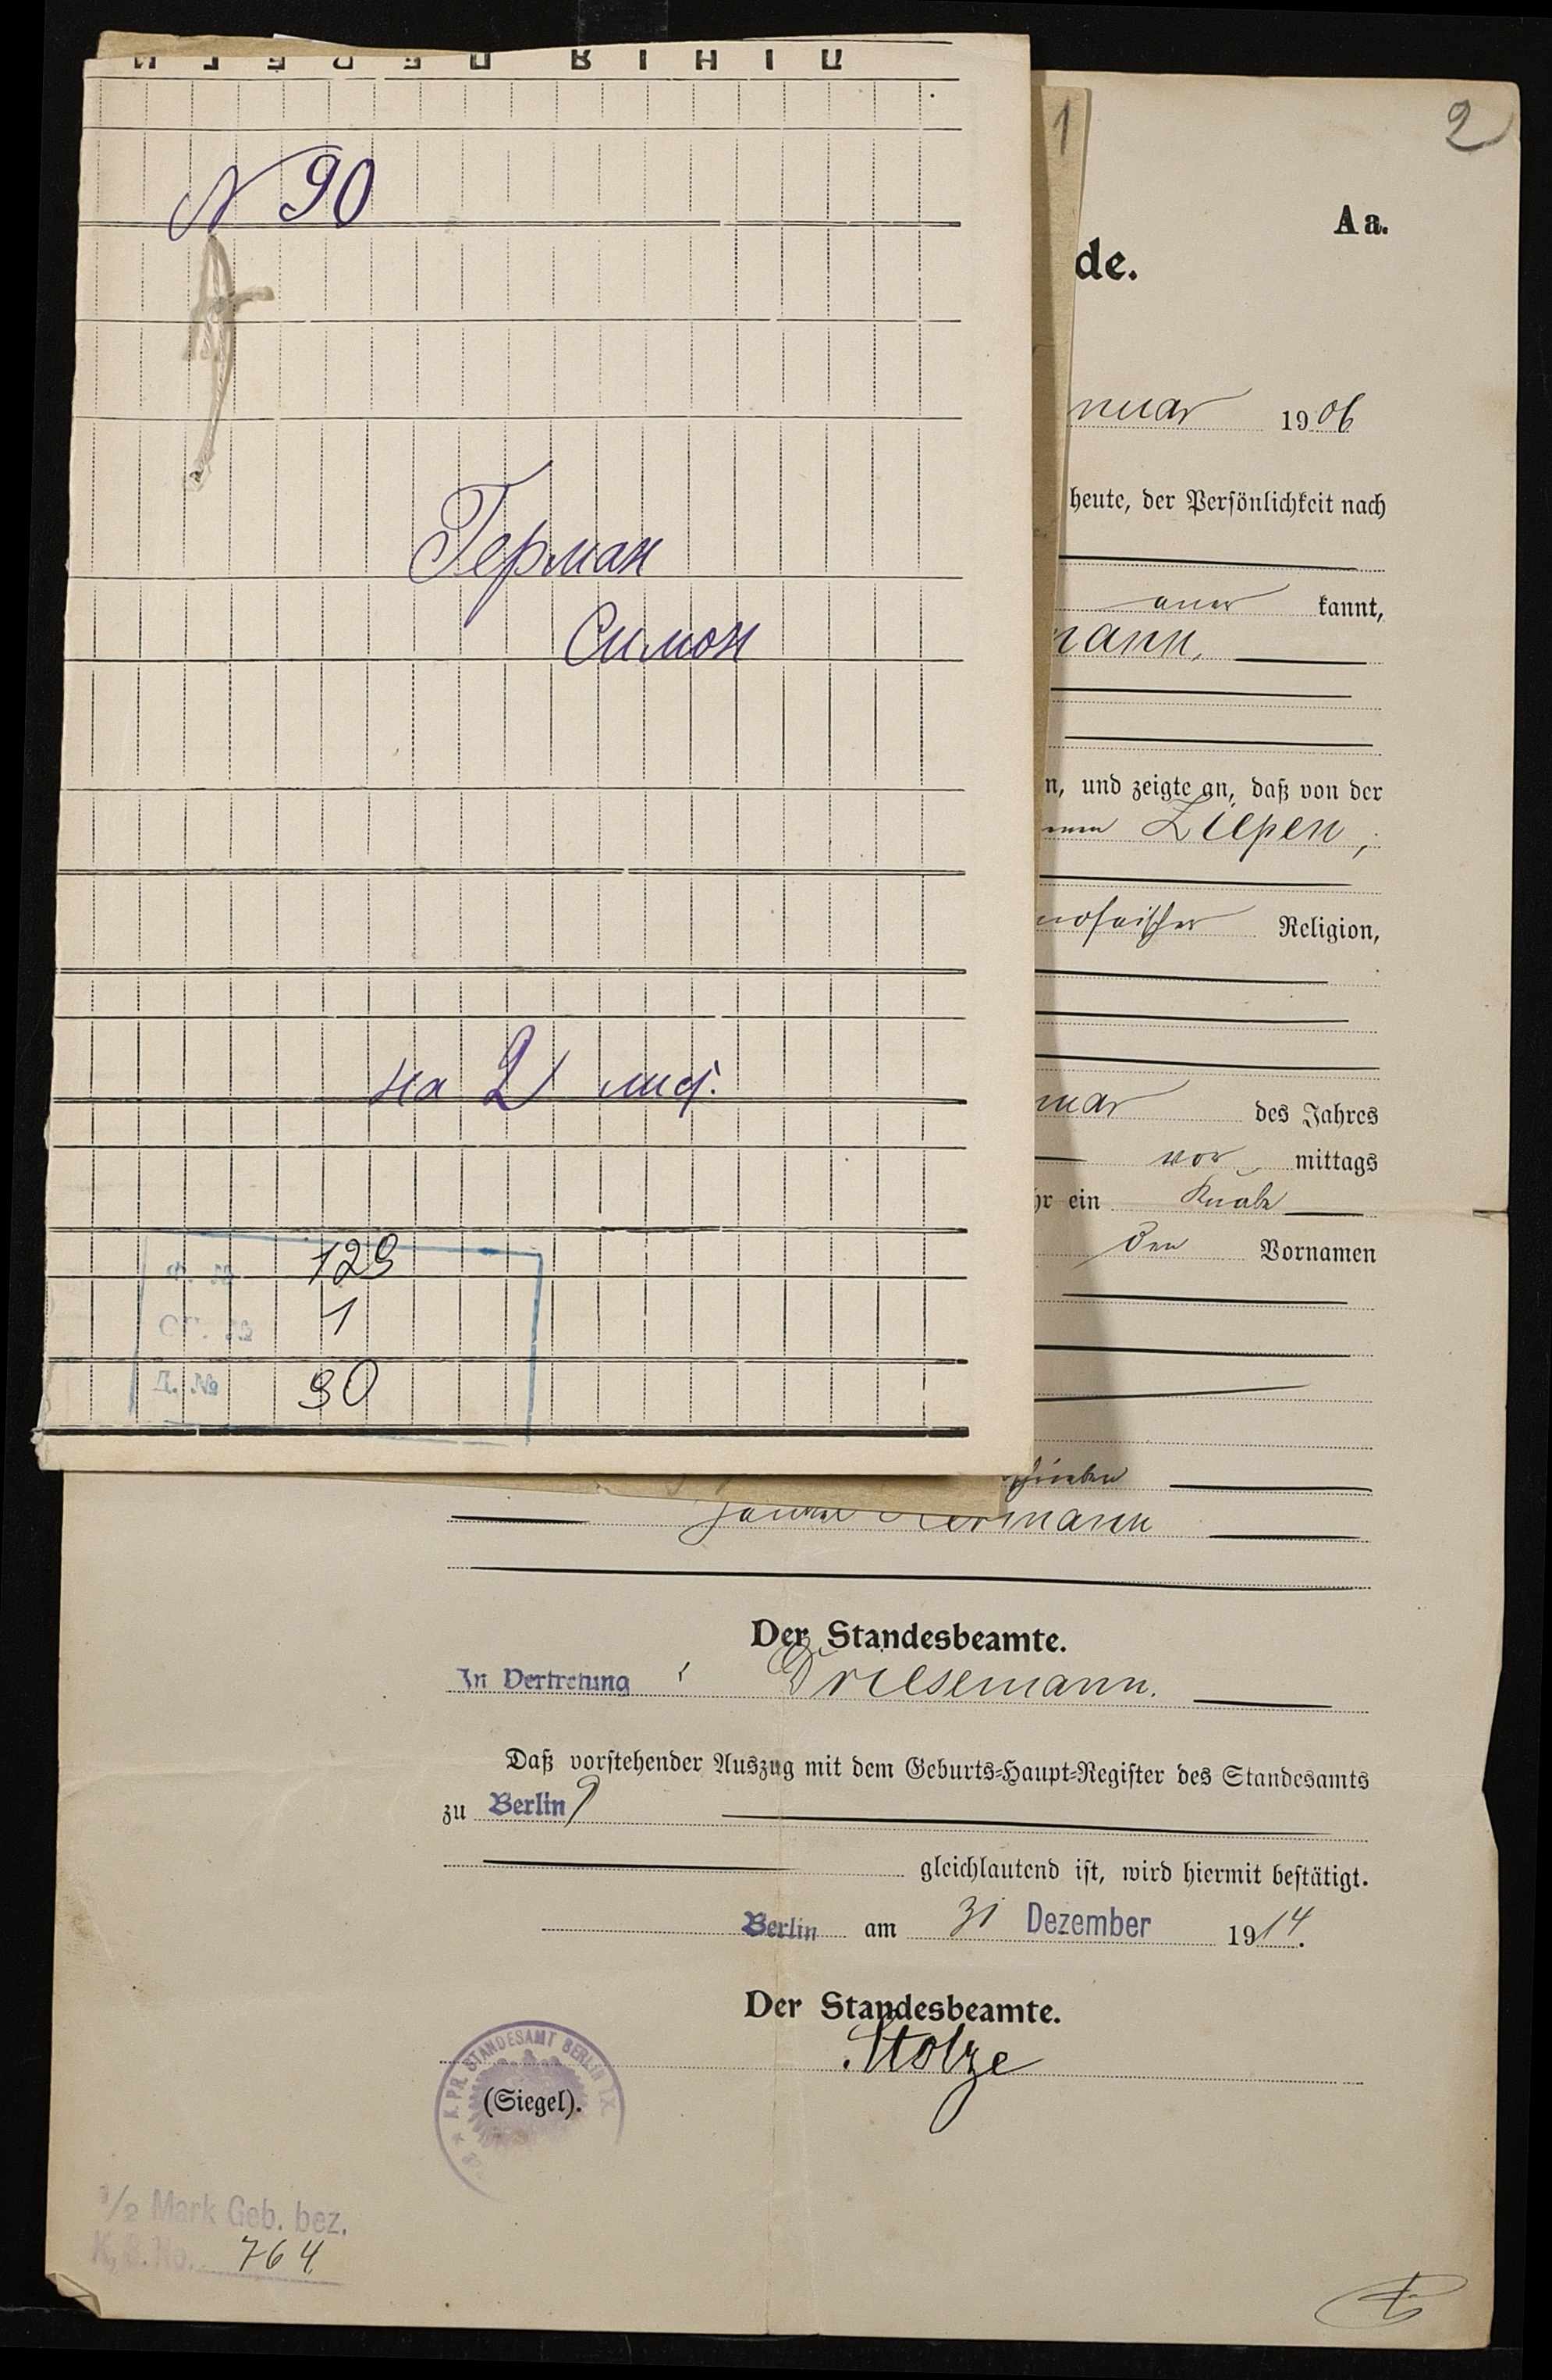 N 90
Герман
Симон
на 2 лис.
Ф. № 129
ОП. № 1
Д. № 90
1
2
A a.
de.
nuar 1906
heute, der Persönlichkeit nach
aner kannt,
mann,
n, und zeigte an, daß von der
Ziepen,
mosaischer Religion,
nuar des Jahres
vor mittags
hr ein Knabe
den Vornamen
schrieben
Hermann
Der Standesbeamte.
In Vertretung: Driesemann.
Daß vorstehender Auszug mit dem Geburts-Haupt-Register des Standesamts
zu Berlin 9
gleichlautend ist, wird hiermit bestätigt.
Berlin am 31 Dezember 1914.
Der Standesbeamte.
Stolze
K. PR. STANDESAMT BERLIN IX.
(Siegel).
1/2 Mark Geb. bez.
K, B. No. 764